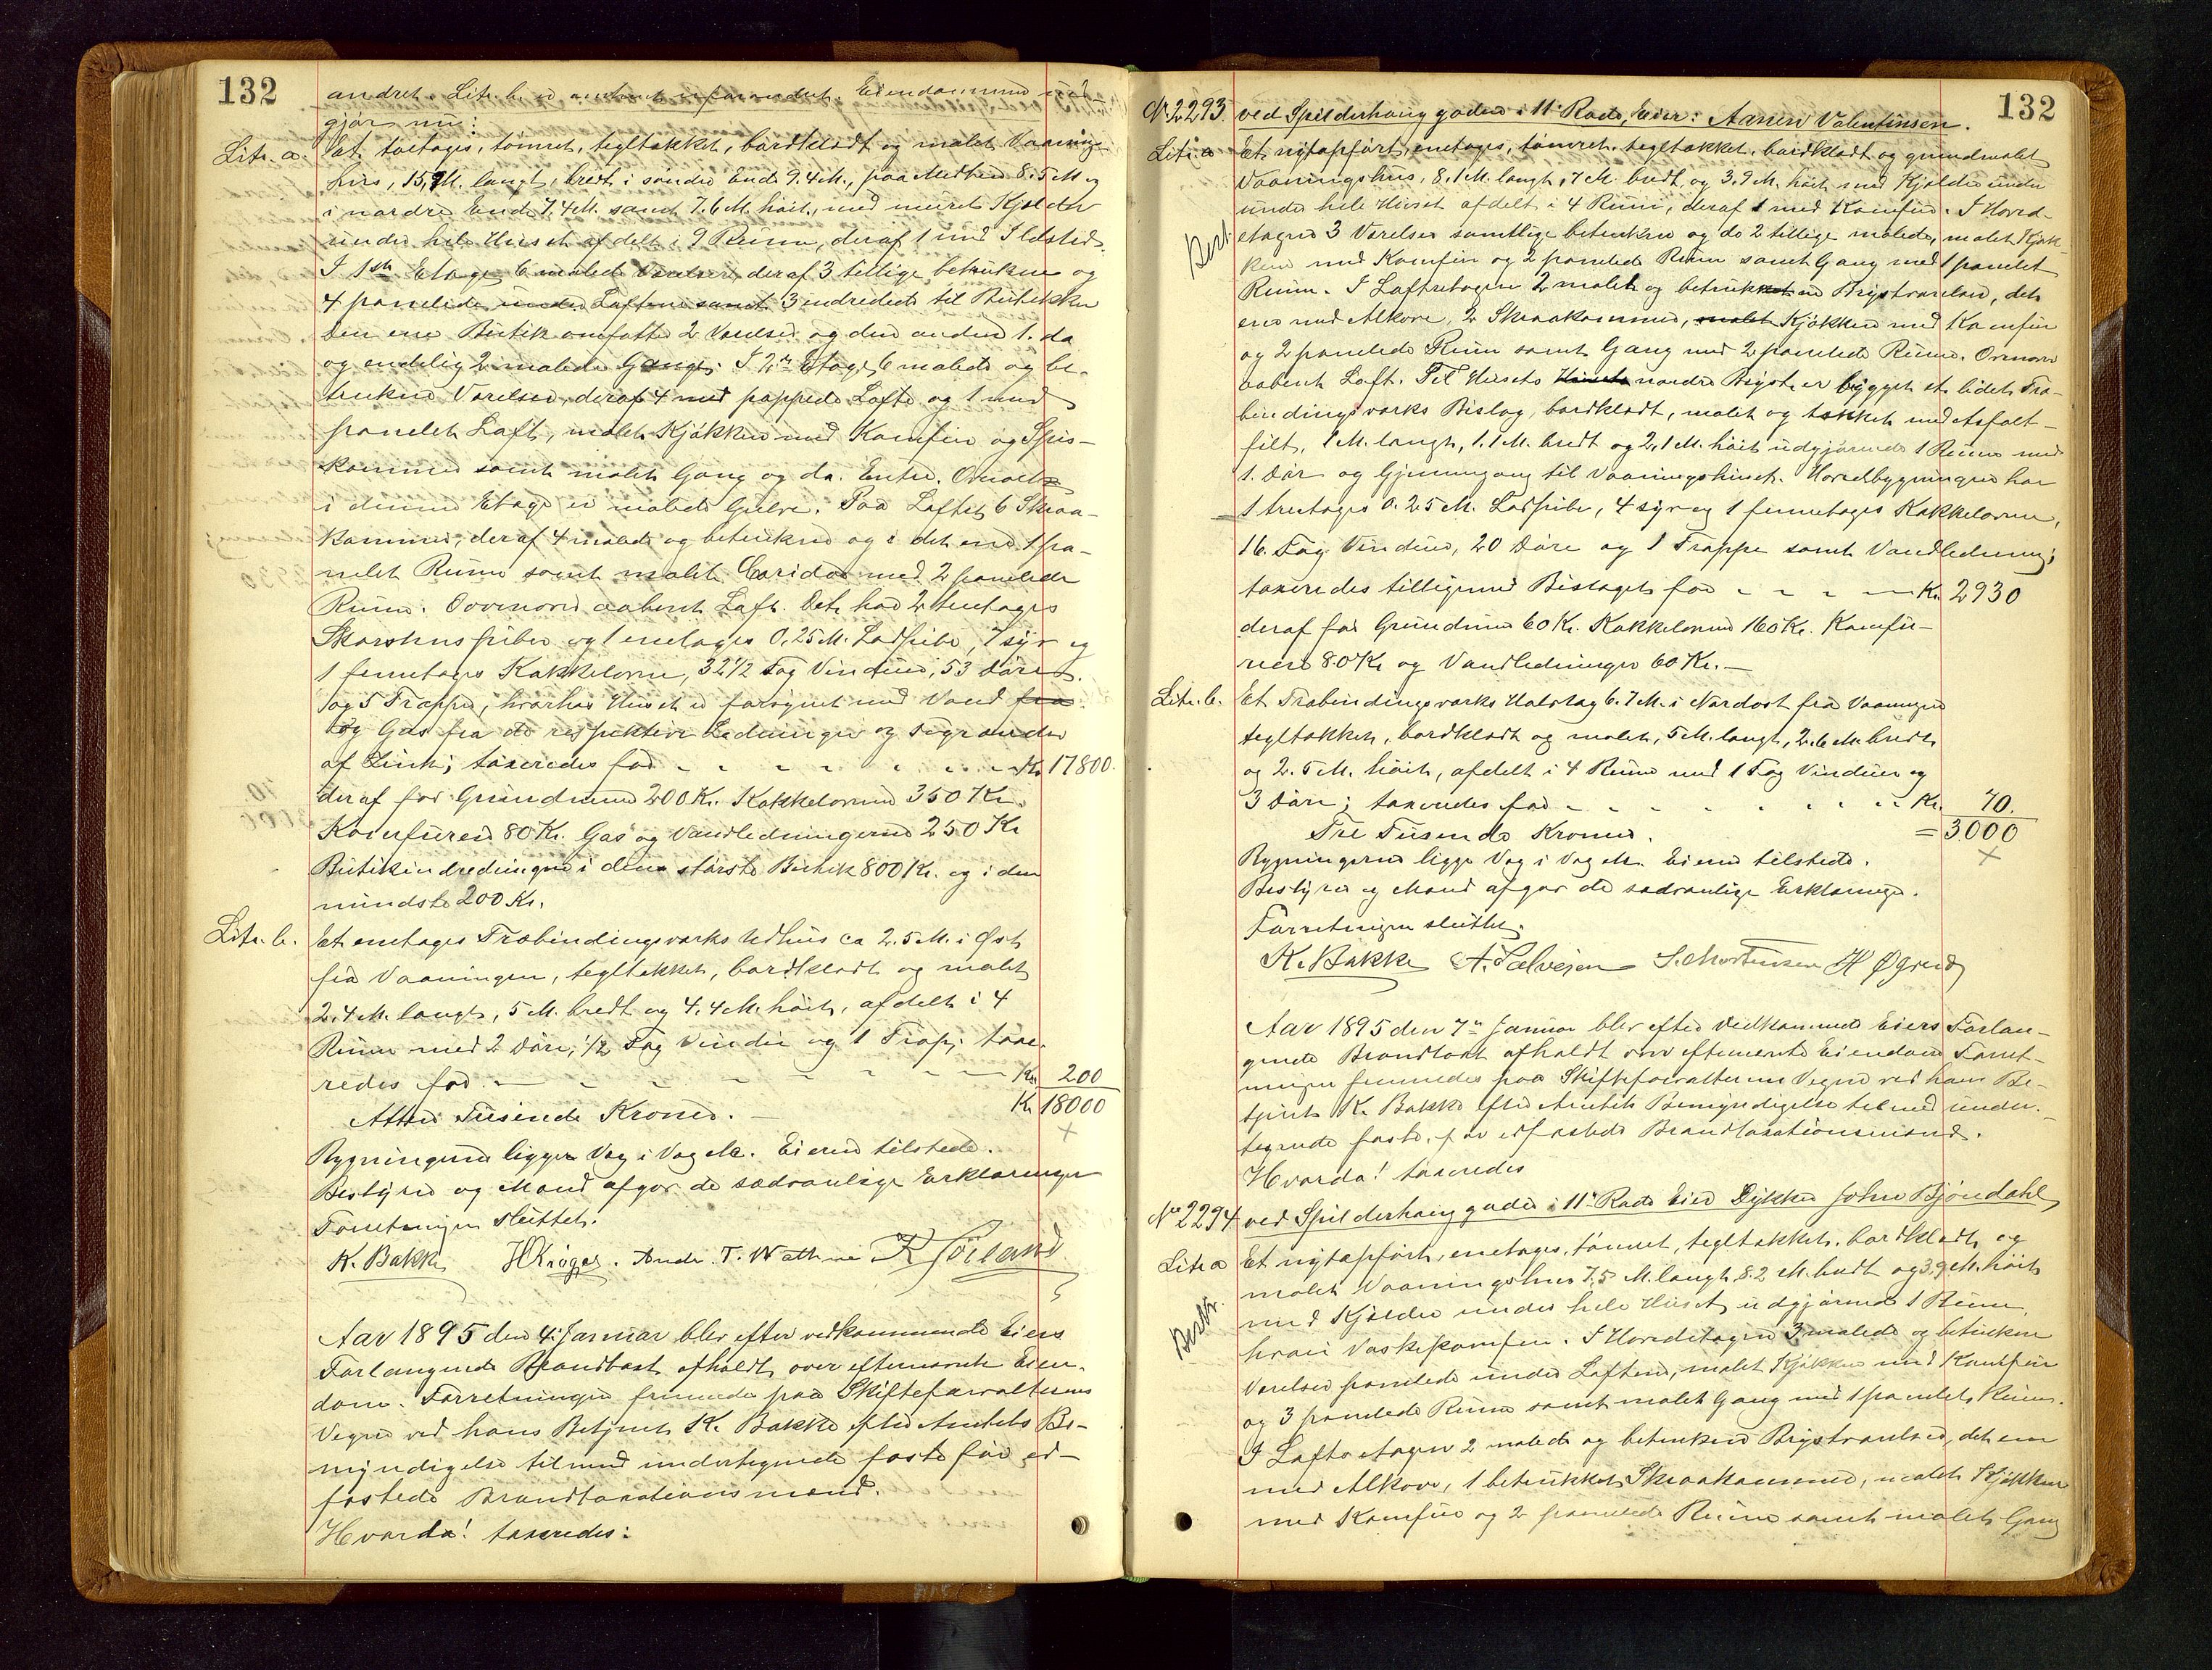 132
andret. Litr. b. er uforandret. Eiendommen ud-
gjør nu:
Litr. a. Et toetages, tømret, tegltækket, bordklædt og malet Vaanings-
hus, 15,9 M. langt, bredt i søndre Ende 9.4 M., paa Midten 8.5 M og
i nordre Ende 7.4 M. samt 7.6 M. høit, med muret Kjelder
under hele Huset afdelt i 9 Rum, deraf 1 med Ildsted.
I 1ste Etage 6 malede Værelser, deraf 3 tillige betrukne og
4 panelede under Loftene samt 3 indredede til Butikker
Den ene Butik omfatter 2 Værelser og den anden 1. do
og endelig 2 malede Gange. I 2den Etage 6 malede og be-
trukne Værelser, deraf 4 med pappede Lofte og 1 med
panelet Loft, malet Kjøkken med Komfur og Spis-
kammer samt malet Gang og do. Entre. Overalt
i denne Etage er malede Gulve. Paa Loftet 6 Skraa-
kammer, deraf 4 malede og betrukne og i det ene 1 pa-
nelet Rum samt malet Coridor med 2 panelede
Rum. Ovenover aabent Loft. Det har 2 toetages
Skorstenspiber og 1 enetages 0,25 M. Lodpibe, 7 syr og
1 femetages Kakkelovne, 32 1/2 Fag Vinduer, 53 Døre
og 5 Trapper, hvorhos Huset er forsynet med Vand fra
og Gas fra de respektive Ledninger og Tagrender
af Zink; taxeredes for - - - - - - Kr. 17800.
deraf for Grundmur 200 Kr. Kakkelovne 350 Kr.
Komfuren 80 Kr. Gas og Vandledningerne 250 Kr
Butikindredningen i den største Butik 800 Kr. og i den
mindste 200 Kr.
Litr. b. Et enetages Træbindingsværks Udhus ca 2.5 M. i Øst
fra Vaaningen, tegltækket, bordklædt og malet
2.4 M. langt, 5 M. bredt og 4.4 M. høit, afdelt i 4
Rum med 2 Døre, 1/2 Fag Vindu og 1 Trap; taxe-
redes for - - - - - - - - Kr. 200
Atten Tusinde Kroner. - Kr. 18000
Bygningerne ligger Væg i Væg M. Eieren tilstede.
Bestyrer og Mænd afgav de sædvanlige Erklæringer
Forretningen sluttet.
K. Bakke HKrøger. Andr. T. Wathne
Aar 1895 den 4. Januar blev efter vedkommende Eiers
Forlangende Brandtaxt afholdt over efternævnte Eien-
dom. Forretningen fremmedes paa Skifteforvalterens
Vegne ved hans Betjent K. Bakke efter Amtets Be-
myndigelse tilmed undertegnede faste for ed-
fæstede Brandtaxationsmænd.
Hvorda! taxeredes:
132
No 2293. ved Spilderhauggaden i 11te Rode, Eier: Aanen Valentinsen.
Litr. a Et nyopført, enetages, tømret, tegltækket, bordklædt og grundmalet
Vaaningshus, 8.1 M. langt, 7 M. bredt og 3.9 M. høit med Kjelder under
under hele Huset afdelt i 4 Rum, deraf 1 med Komfur. I Hoved-
etagen 3 Værelser samtlige betrukne og do 2 tillige malede, malet Kjøk-
ken med Komfur og 2 panelede Rum samt Gang med 1 panelet
Rum. I Loftsetagen 2 malet og betrukkne Brystværelser, det
ene med Alkove, 2 Skraakammer, malet Kjøkken med Komfur
og 2 panelede Rum samt Gang med 2 panelede Rum. Ovenover
aabent Loft. Til Husets Husets nordre Bryst er bygget et lidet Træ-
bindingsværks Bislag, bordklædt, malet og tækket med Asfalt-
filt, 1 M. langt, 1.1 M. bredt og 2.1 M. høit udgjørende 1 Rum med
1. Dør og Gjennemgang til Vaaningshuset. Hovedbygningen har
1 treetages 0.25 M. Lodpibe, 4 syr og 1 femetages Kakkelovne,
16 Fag Vinduer, 20 Døre og 1 Trappe samt Vandledning;
taxeredes tilligemed Bislaget for - - - - Kr. 2930
deraf for Grundmur 60 Kr. Kakkelovne 160 Kr. Komfu-
rerne 80 Kr og Vandledningen 60 Kr. -
Litr. b. Et Træbindingsværks Halvtag 6.7 M. i Nordost fra Vaaningen
tegltækket, bordklædt og malet, 5 M. langt, 2.6 M. bredt
og 2.5 M. høit, afdelt i 4 Rum med 1 Fag Vinduer og
3 Døre; taxeredes for - - - - - - - Kr. 70.
Tre Tusinde Kroner. = 3000
Bygningerne ligge Væg i Væg M. Eieren tilstede.
Bestyrer og Mænd afgav de sædvanlige Erklæringer.
Forretningen sluttet.
K. Bakke A. Salvesen S. Mortensen
Aar 1895 den 7de Januar blev efter vedkommende Eiers Forlan-
gende Brandtaxt afholdt over efternævnte Eiendom. Forret-
ningen fremmedes paa Skifteforvalterens Vegne ved hans Be-
tjent K. Bakke efter Amtets Bemyndigelse tilmed under-
tegnede faste, for edfæstede Brandtaxationsmænd.
Hvorda! taxeredes
No 2294 ved Spilderhauggaden i 11te Rode Eier Dykker John Bjøndahl
Litr. a Et nyopført, enetages, tømret, tegltækket, bordklædt og
malet Vaaningshus 7.5 M. langt, 8.2 M. bredt og 3,9 M. høit
med Kjelder under hele Huset udgjørende 1 Rum,
hvori Vaskekomfur. I Hovedetagen 3 malede og betrukne
Værelser panelede under Loftene, malet Kjøkken med Komfur
og 3 panelede Rum samt malet Gang med 1 panelet Rum.
I Loftsetagen 2 malede og betrukne Brystværelser, det ene
med Alkove, 1 betrukket Skraakammer, malet Kjøkken
med Komfur og 2 panelede Rum samt malet Gang